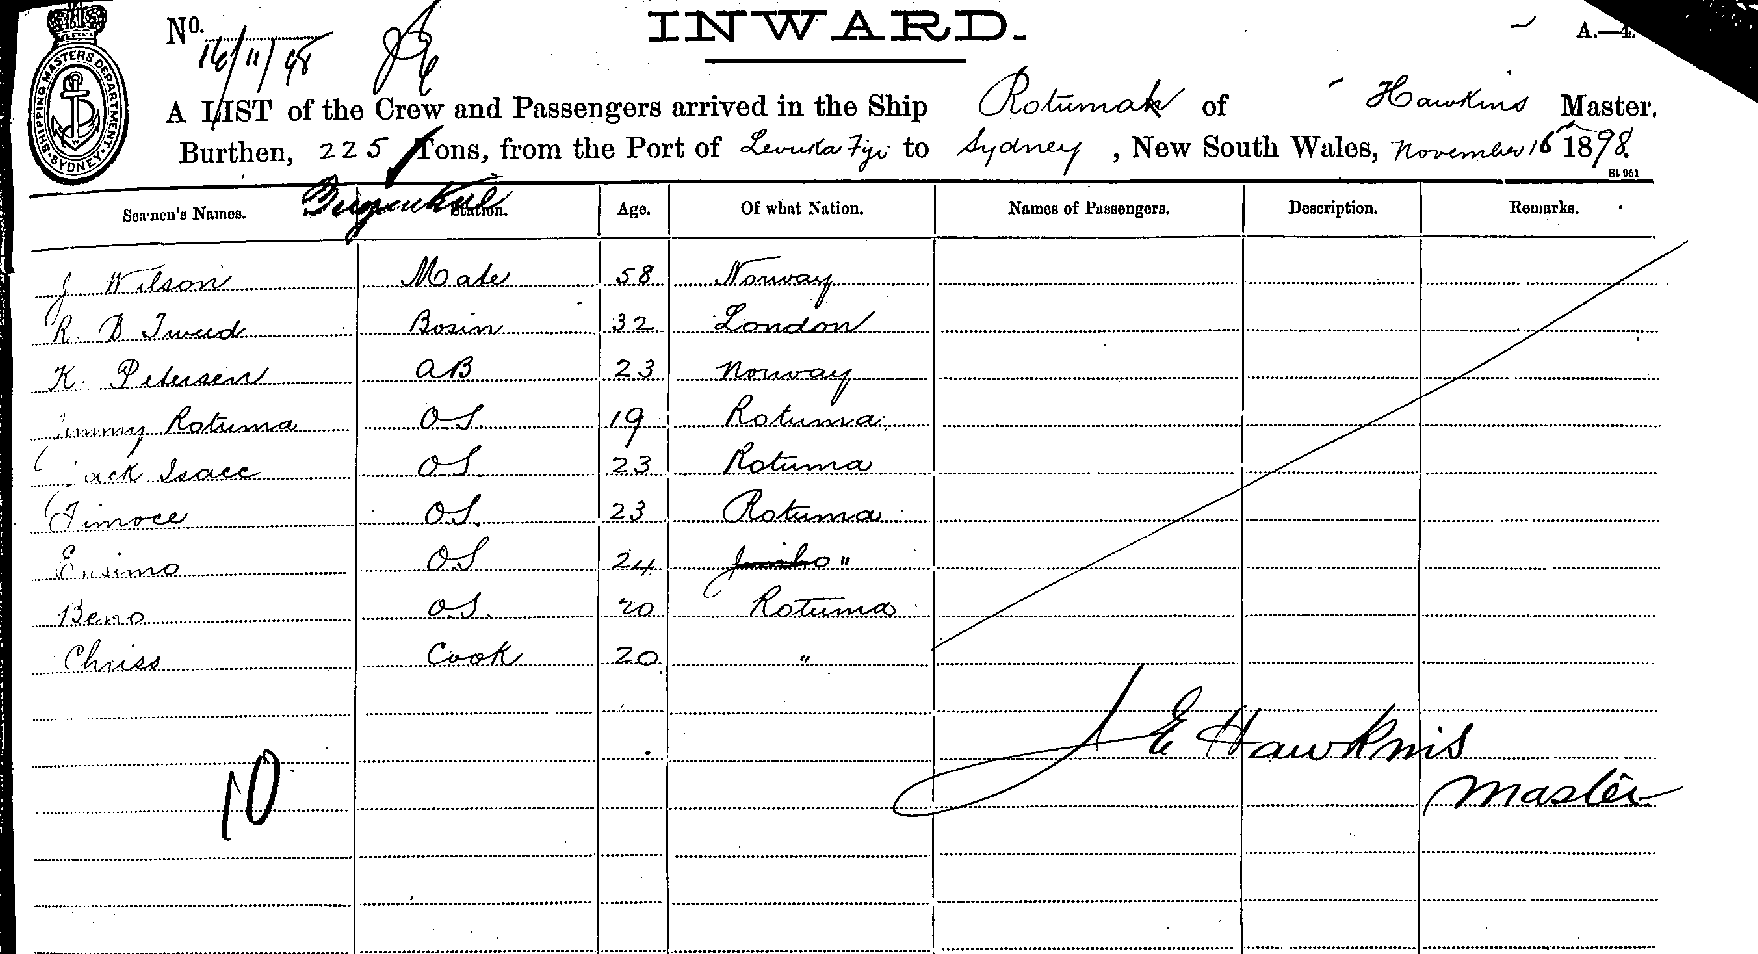 INWARD.
No. 16/11/98
A.—4.
SHIPPING MASTERS DEPARTMENT SYDNEY
A LIST of the Crew and Passengers arrived in the Ship Rotumah of Hawkins Master.
Burthen, 225 Tons, from the Port of Levuka Fiji to Sydney, New South Wales, November 16 1898.
Seamen's Names. Station. Age. Of what Nation. Names of Passengers. Description. Remarks.
J Wilson Mate 58 Norway
R. B Tweed Bosin 32 London
K. Petersen AB 23 Norway
Jimmy Rotuma OS. 19 Rotuma
Jack Isacc OS. 23 Rotuma
OS. 23 Rotuma
OS 24 "
Beno OS. 20 Rotuma
Chriss Cook 20 "
J E Hawkins
Master
10